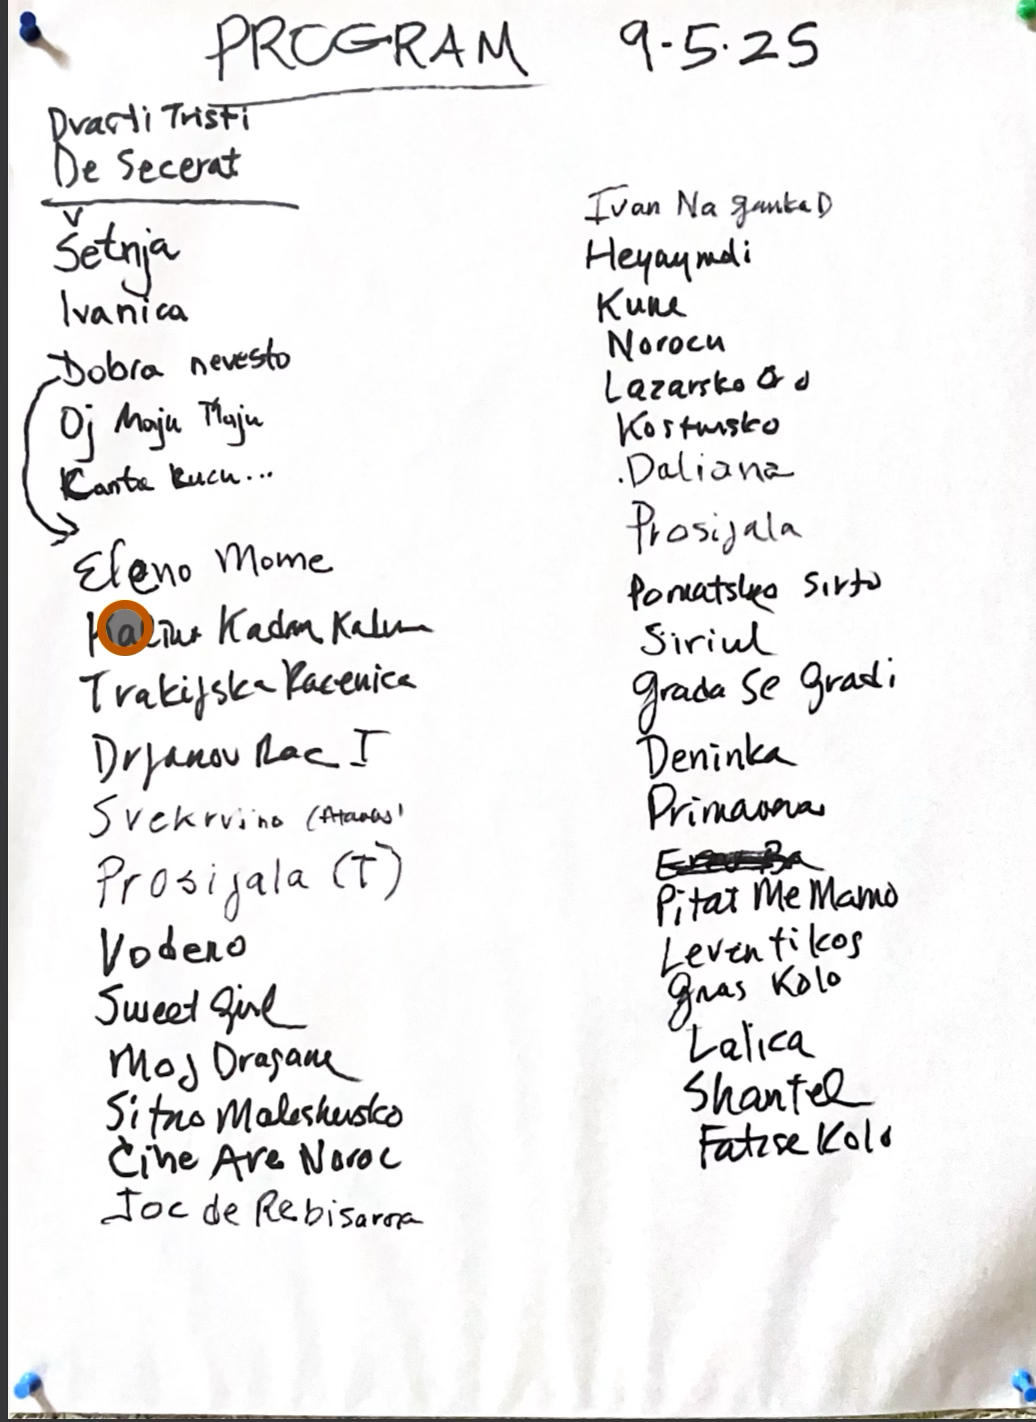 PROGRAM 9-5-25
Dvacti Tristi
De Secerat
Šetnja
Ivanica
Dobra nevesto
Oj Maju Maju
Kanta Kucu...
Eleno Mome
Kadan
Trakijska Racenica
Drjanov Rac I
Svekrvino (Atanas)
Prosijala (T)
Vodeno
Sweet Girl
Moj Dragane
Sitno Maleshevsko
Čine Are Noroc
Joc de Rebisaroa
Ivan Na ganka D
Kune
Norocu
Lazarsko Or
Kostursko
.Daliana
Prosijala
Pomatsko Sirto
Siriul
Grada Se Gradi
Deninka
Primavera
Pitat Me Mamo
Leventikos
Gnas Kolo
Lalica
Shantel
Fatise Kolo